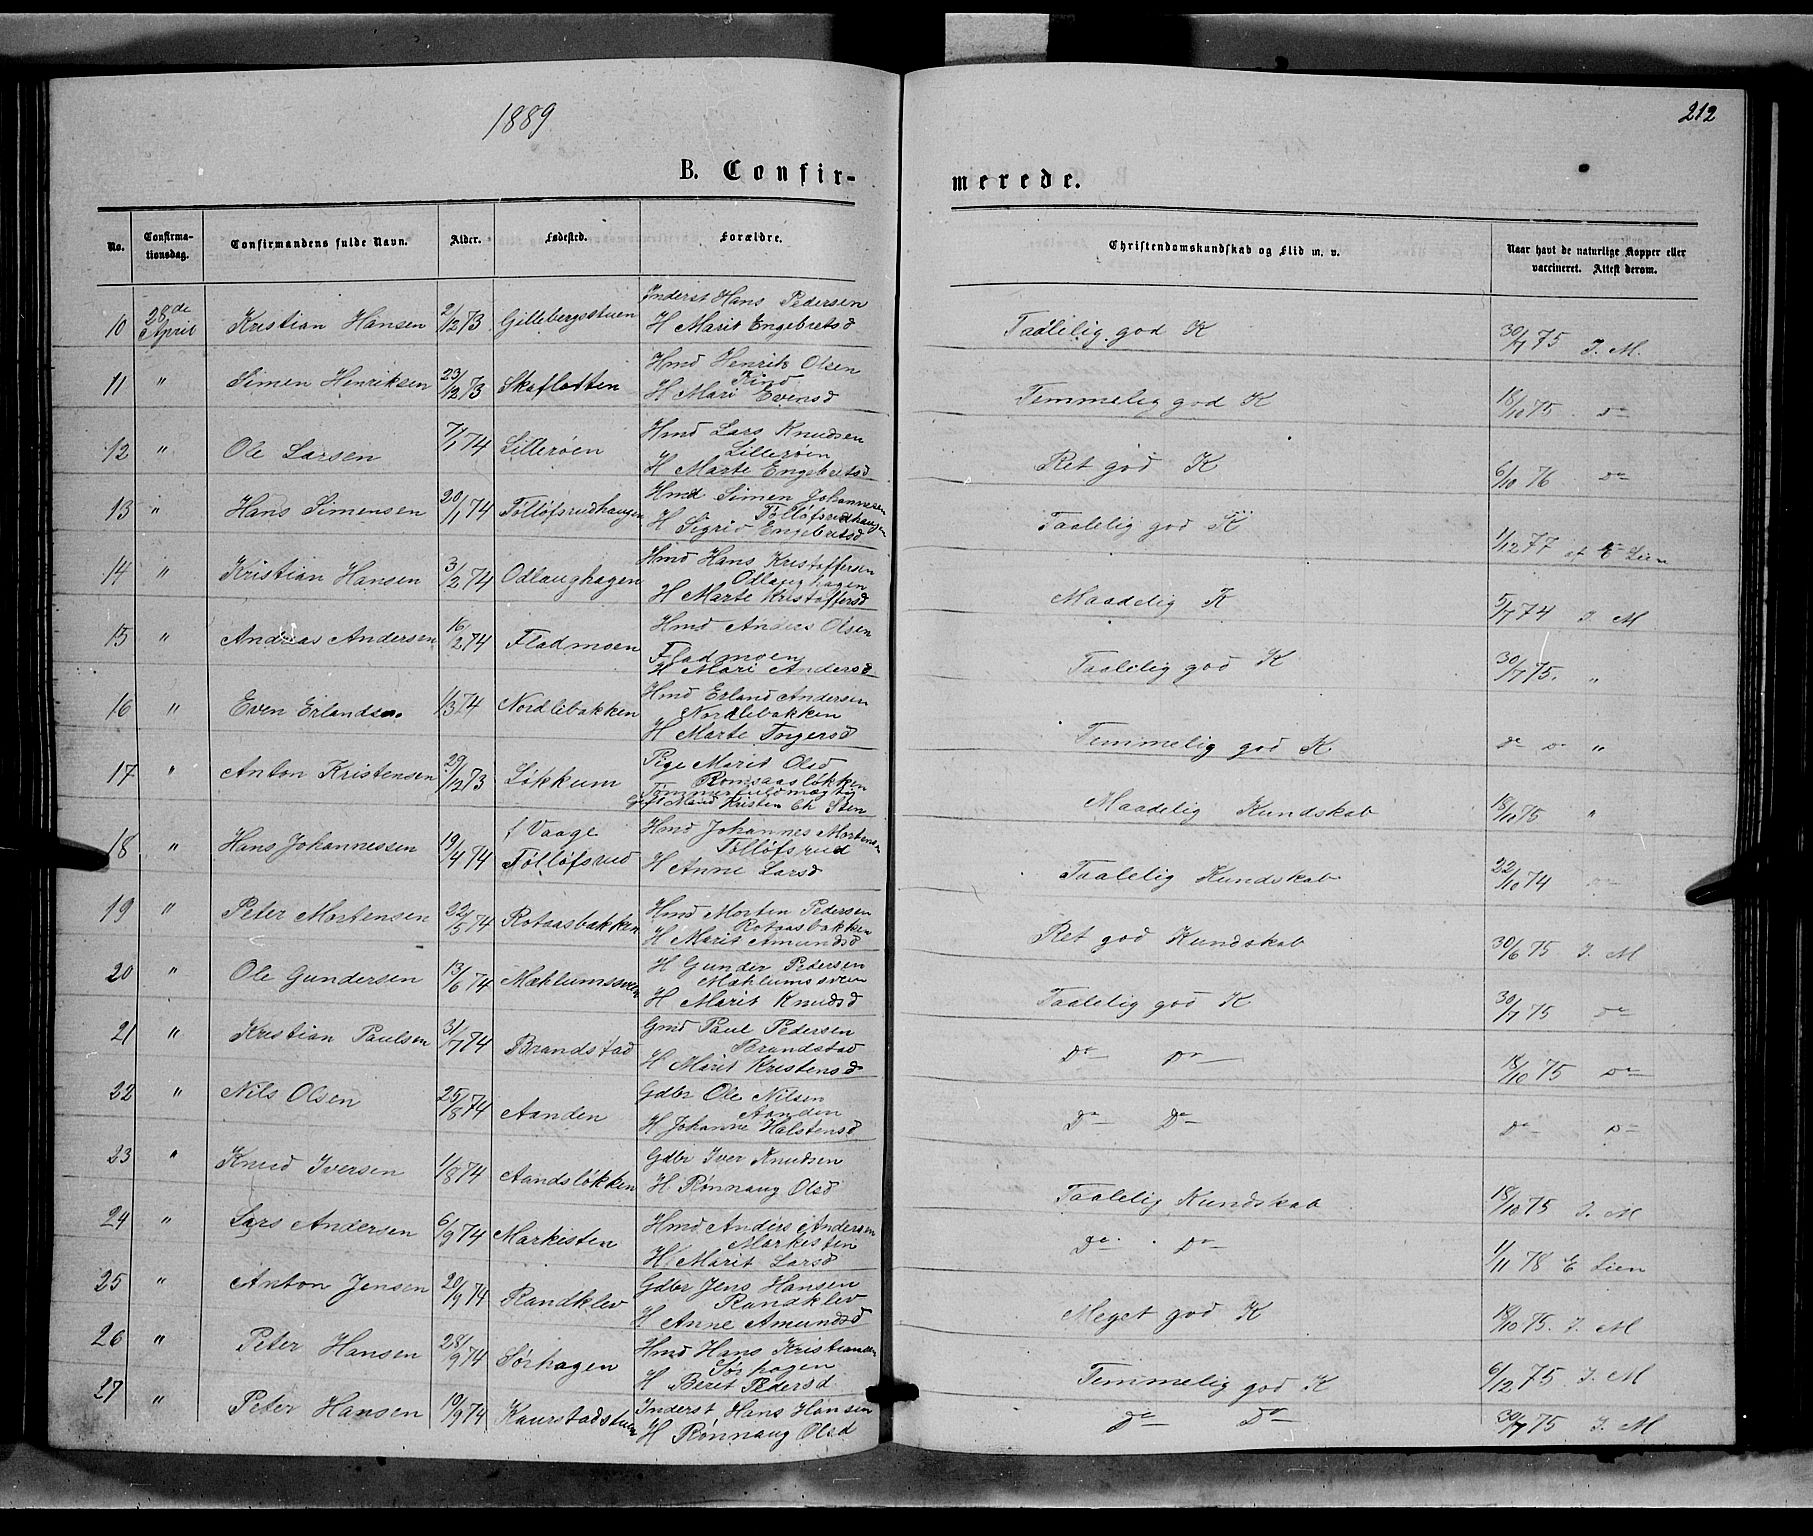 1889
212
B. Confir-
merede.
No. Confirma-tionsdag. Confirmandens fulde Navn. Alder. Fødested. Forældre. Christendomskundskab og Flid m. v. Naar havt de naturlige Kopper eller vaccineret. Attest derom.
Inderst Hans Pedersen
10 28de April Kristian Hansen 2/12 73 Gillebergsstuen H Marit Engebretsd Taalelig god K 30/7 75 J. M.
Hmd Henrik Olsen
11 " Simen Henriksen 23/12 73 Skaflotten H Mari Evensd Temmelig god K 18/10 75 do
Hmd Lars Knudsen
Lillerøen
12 " Ole Larsen 7/1 74 Lillerøen H Marte Engebretsd Ret god K 6/10 76 do
Hmd Simen Johannesen
Tolløfsrudhaugen
13 " Hans Simensen 20/1 74 Tolløfsrudhaugen H Sigrid Engebretsd Taalelig god K 1/12 77 af E Lien
Hmd Hans Kristoffersen
Odlaughagen
14 " Kristian Hansen 3/2 74 Odlaughagen H Marte Kristoffersd Maadelig K 5/7 74 J. M
Hmd Anders Olsen
Fladmoen
15 " Andreas Andersen 16/2 74 Fladmoen H Mari Andersd Taalelig god K 30/7 75. "
Hmd Erland Andersen
Nordlibakken
16 " Even Erlandsen 1/3 74 Nordlibakken H Marte Torgersd Temmelig god K. do do "
Pige Marit Olsd
Romsaasløkken
Tømmerfuldmægtig
17 " Anton Kristensen 29/12 73 Løkkum Gift Mand Kristen Ch. Sten Maadelig Kundskab 18/10 75 "
f Vaage Hmd Johannes Mortensen
Tolløfsrud
18 " Hans Johannessen 19/4 74 Tolløfsrud H Anne Larsd Taalelig Kundskab 22/10 74 do
Hmd Morten Pedersen
Rotaasbakken
19 " Peter Mortensen 22/5 74 Rotaasbakken H Marit Amundsd Ret god Kundskab 30/6 75 J. M
H Gunder Pedersen
Mæhlumssveen
20 " Ole Gundersen 13/6 74 Mæhlumssveen H Marit Knudsd Taalelig god K 30/7 75 do
Gmd Paul Pedersen
Brandstad
21 " Kristian Paulsen 31/7 74 Brandstad H Marit Kristensd Do Do 18/10 75 do
Gdbr Ole Nilsen
Aanden
22 " Nils Olsen 25/8 74 Aanden H Johanne Halstensd Do Do do do
Gdbr Iver Knudsen
23 " Knud Iversen 1/8 74 Aandsløkken H Rønnaug Olsd Taalelig Kundskab 18/10 75 J. M
Hmd Anders Andersen
Markisten
24 " Lars Andersen 6/9 74 Markisten H Marit Larsd Do Do 1/11 78 E Lien
Gdbr Jens Hansen
Randklev
25 " Anton Jensen 20/9 74 Randklev H Anne Amundsd Meget god K 18/10 75. J. M
Hmd Hans Kristiansen
Sørhagen
26 " Peter Hansen 28/9 74 Sørhagen H Berit Pedersd Temmelig god K 6/12 75 J. M
Inderst Hans Hansen
27 " Peter Hansen 19/9 74 Kaurstadstuen H Rønnaug Olsd Do Do 30/7 75 J. M